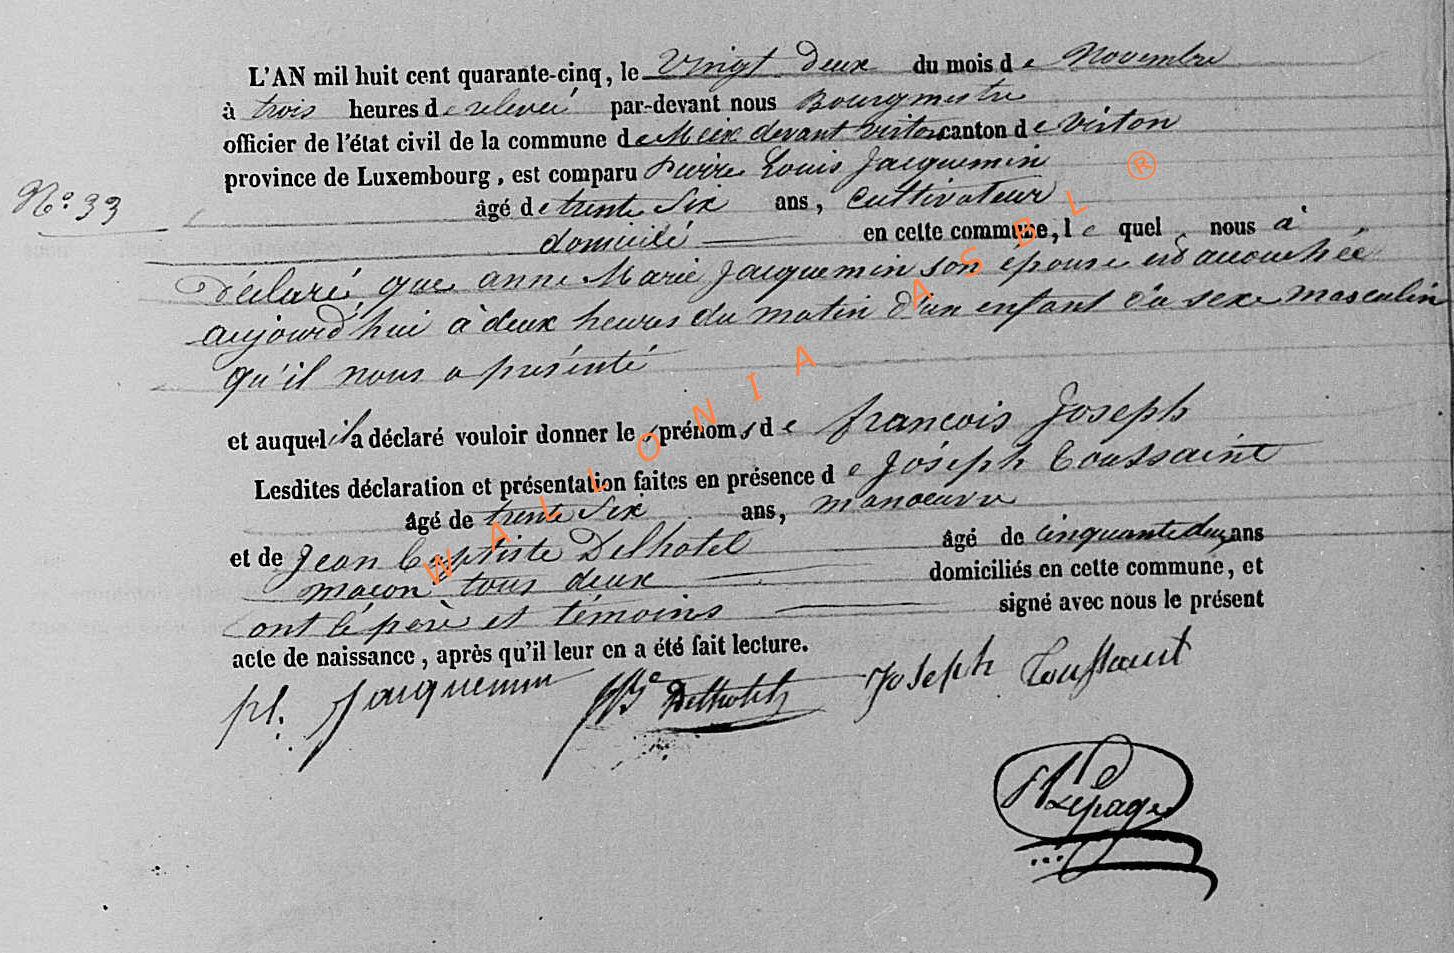 L'AN mil huit cent quarante-cinq, le Vingt deux du mois de Novembre
à trois heures de relevée par-devant nous Bourgmestre
officier de l'état civil de la commune de Meix devant virton canton de Virton
province de Luxembourg, est comparu Pierre Louis Jacquemin
N° 33
âgé de trente Six ans, Cultivateur
domicilié en cette commune, le quel nous a
déclaré que anne Marie Jacquemin son épouse est accouchée
aujourd'hui à deux heures du matin d'un enfant du sexe masculin
qu'il nous a présenté
et auquel il a déclaré vouloir donner les prénoms de francois Joseph
Lesdites déclaration et présentation faites en présence de Joseph Toussaint
âgé de trente Six ans, manoeuvre
et de Jean Baptiste Delhotel âgé de cinquante deux ans
macon tous deux domiciliés en cette commune, et
ont le père et témoins signé avec nous le présent
acte de naissance, après qu'il leur en a été fait lecture.
pl. Jacquemin Delhotel Joseph Toussaint
Lepage
WALLONIA ASBL ®